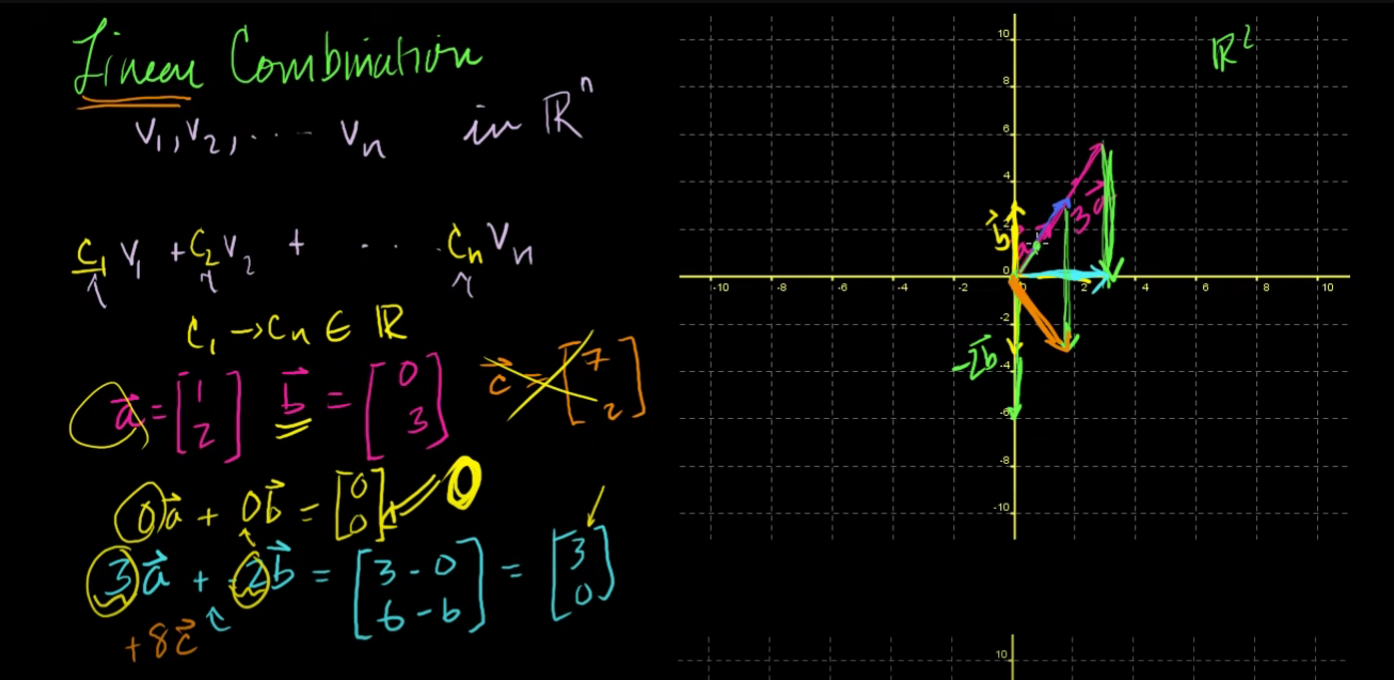 Linear Combination
v₁, v₂, . . . - vₙ in ℝⁿ
c₁v₁ + c₂v₂ + . . . . cₙvₙ
c₁ → cₙ ∈ ℝ
a⃗ = [1 2] b⃗ = [0 3] c⃗ = [7 2]
0a⃗ + 0b⃗ = [0 0] 0
3a⃗ + -2b⃗ = [3 - 0 6 - 6] = [3 0]
+8c⃗
ℝ²
10
8
6
4
3a⃗
2
b⃗
0
-10 -8 -6 -4 -2 0 2 4 6 8 10
-2
-2b⃗
-4
-6
-8
-10
10